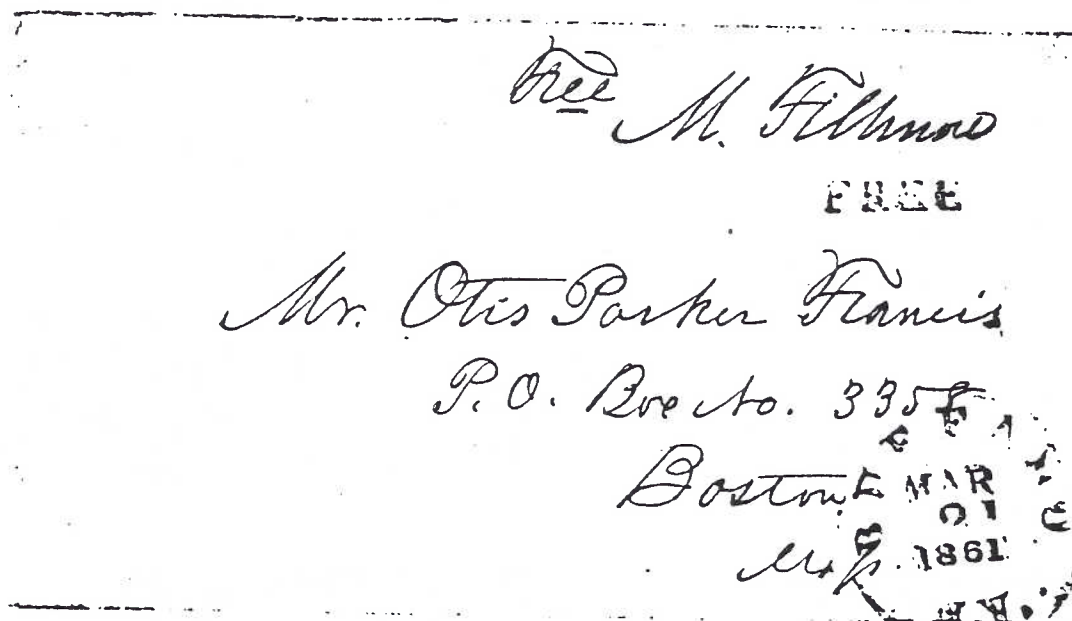 Free
M. Fillmore
FREE
Mr. Otis Parker Francis
P.O. Box No.
Boston
BUFFALO
MAR
21
1861
N.Y.